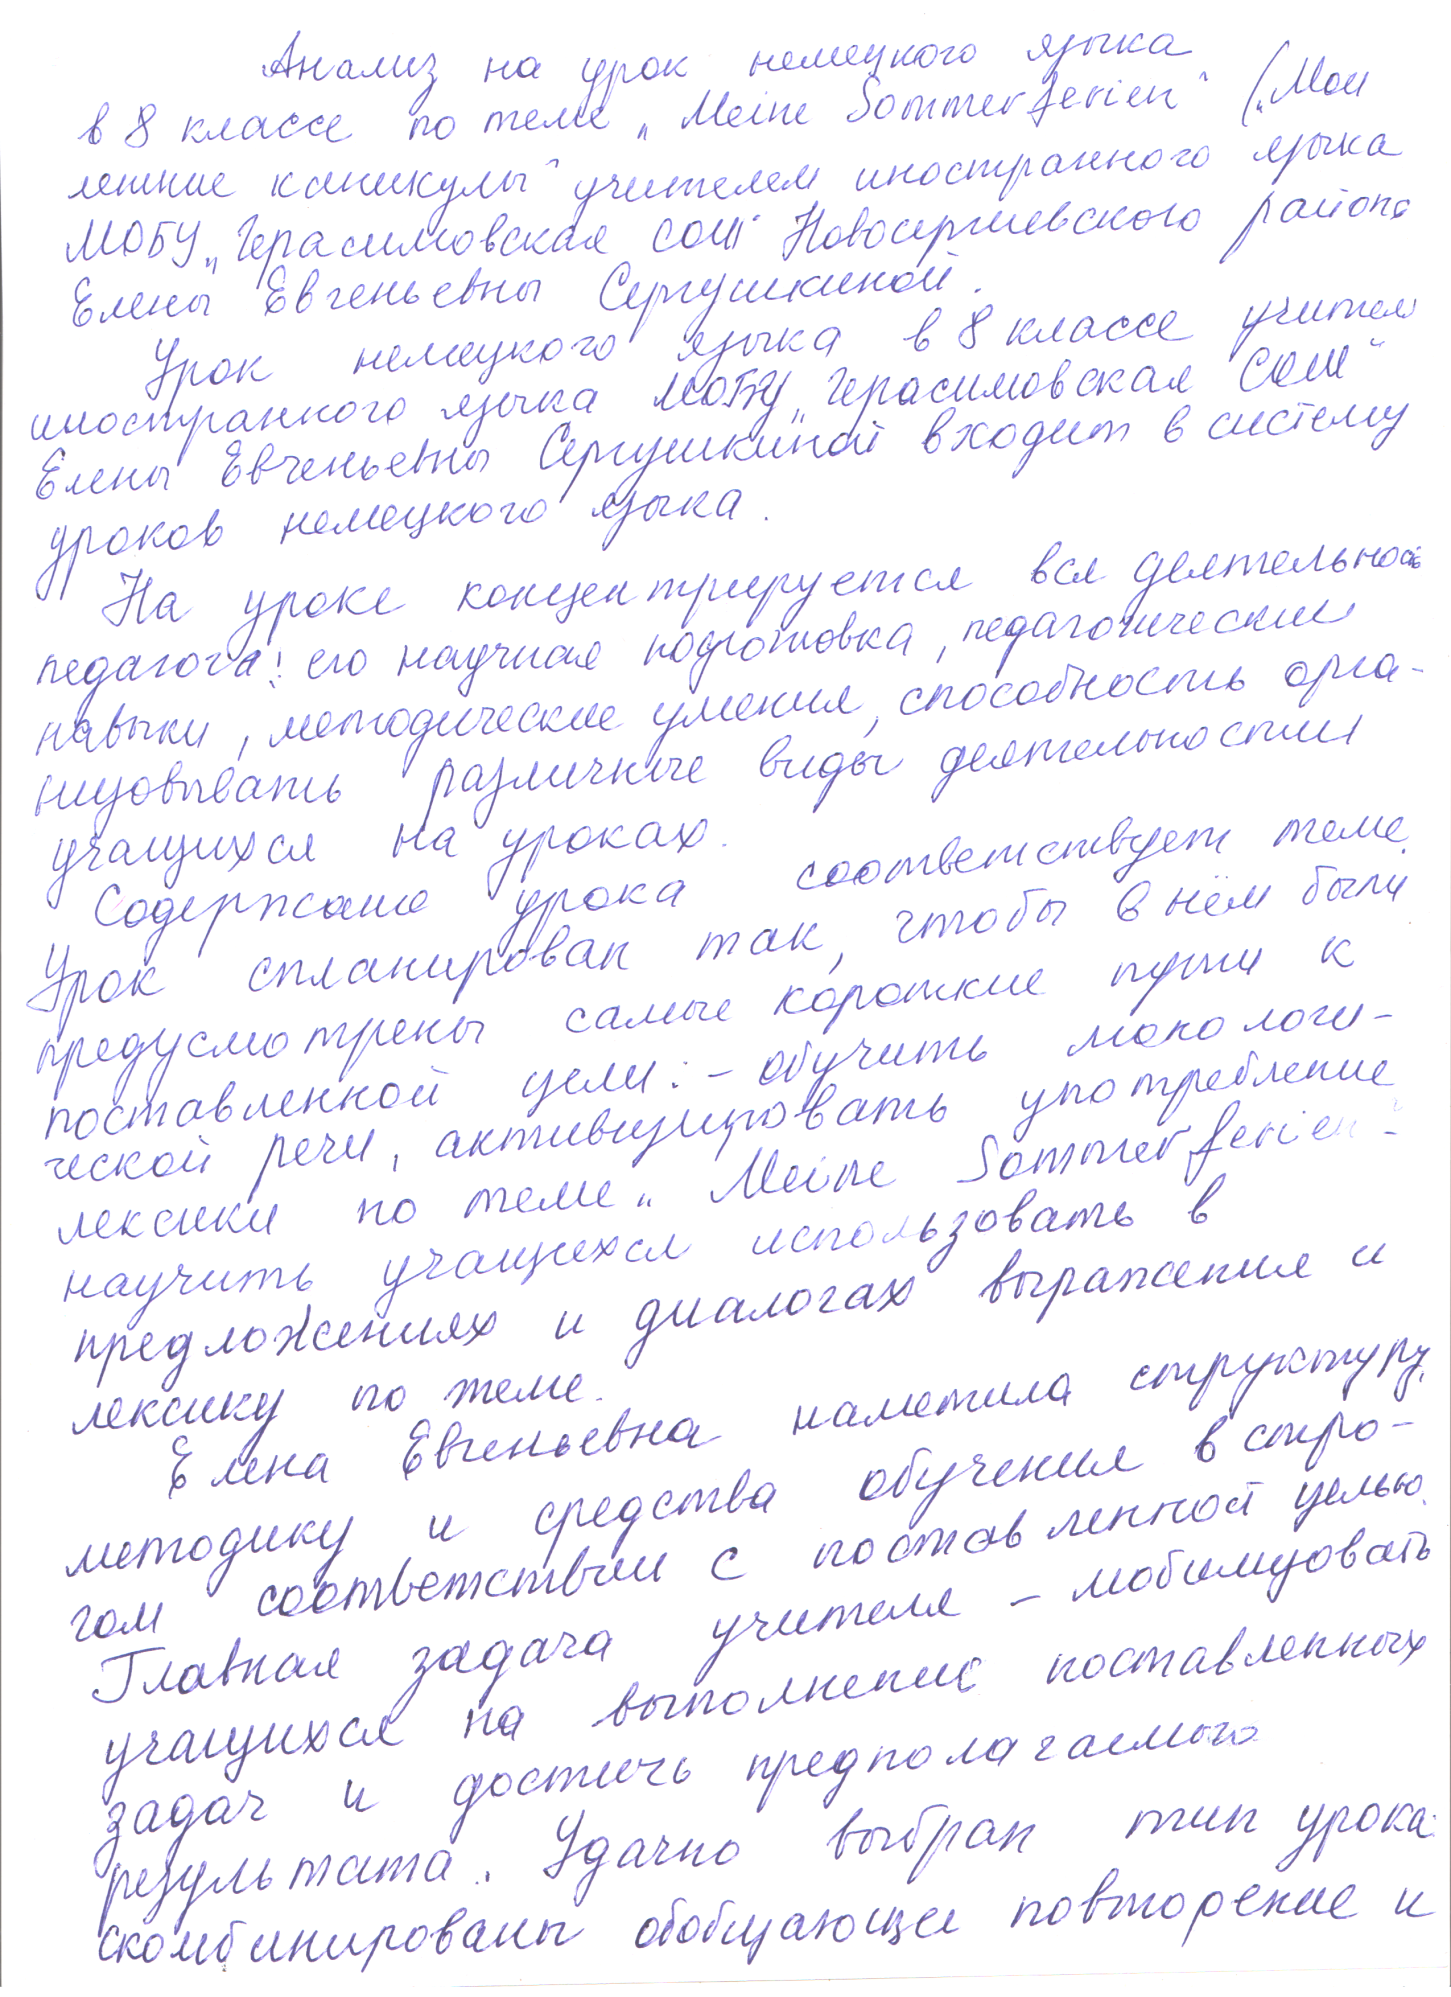 Анализ на урок немецкого языка
в 8 классе по теме „Meine Sommerferien“ („Мои
летние каникулы“ учителем иностранного языка
МОБУ „Герасимовская СОШ“ Новосергиевского района
Елены Евгеньевны Сергушкиной.
Урок немецкого языка в 8 классе учителя
иностранного языка МОБУ „Герасимовская СОШ“
Елены Евгеньевны Сергушкиной входит в систему
уроков немецкого языка.
На уроке концентрируется вся деятельность
педагога: его научная подготовка, педагогические
навыки, методические умения, способность орга-
низовывать различные виды деятельности
учащихся на уроках.
Содержание урока соответствует теме.
Урок спланирован так, чтобы в нём были
предусмотрены самые короткие пути к
поставленной цели: - обучить монологи-
ческой речи, активизировать употребление
лексики по теме „Meine Sommerferien“-
научить учащихся использовать в
предложениях и диалогах выражения и
лексику по теме.
Елена Евгеньевна наметила структуру,
методику и средства обучения в стро-
гом соответствии с поставленной целью.
Главная задача учителя - мобилизовать
учащихся на выполнение поставленных
задач и достичь предполагаемого
результата. Удачно выбран тип урока:
скомбинированы обобщающее повторение и